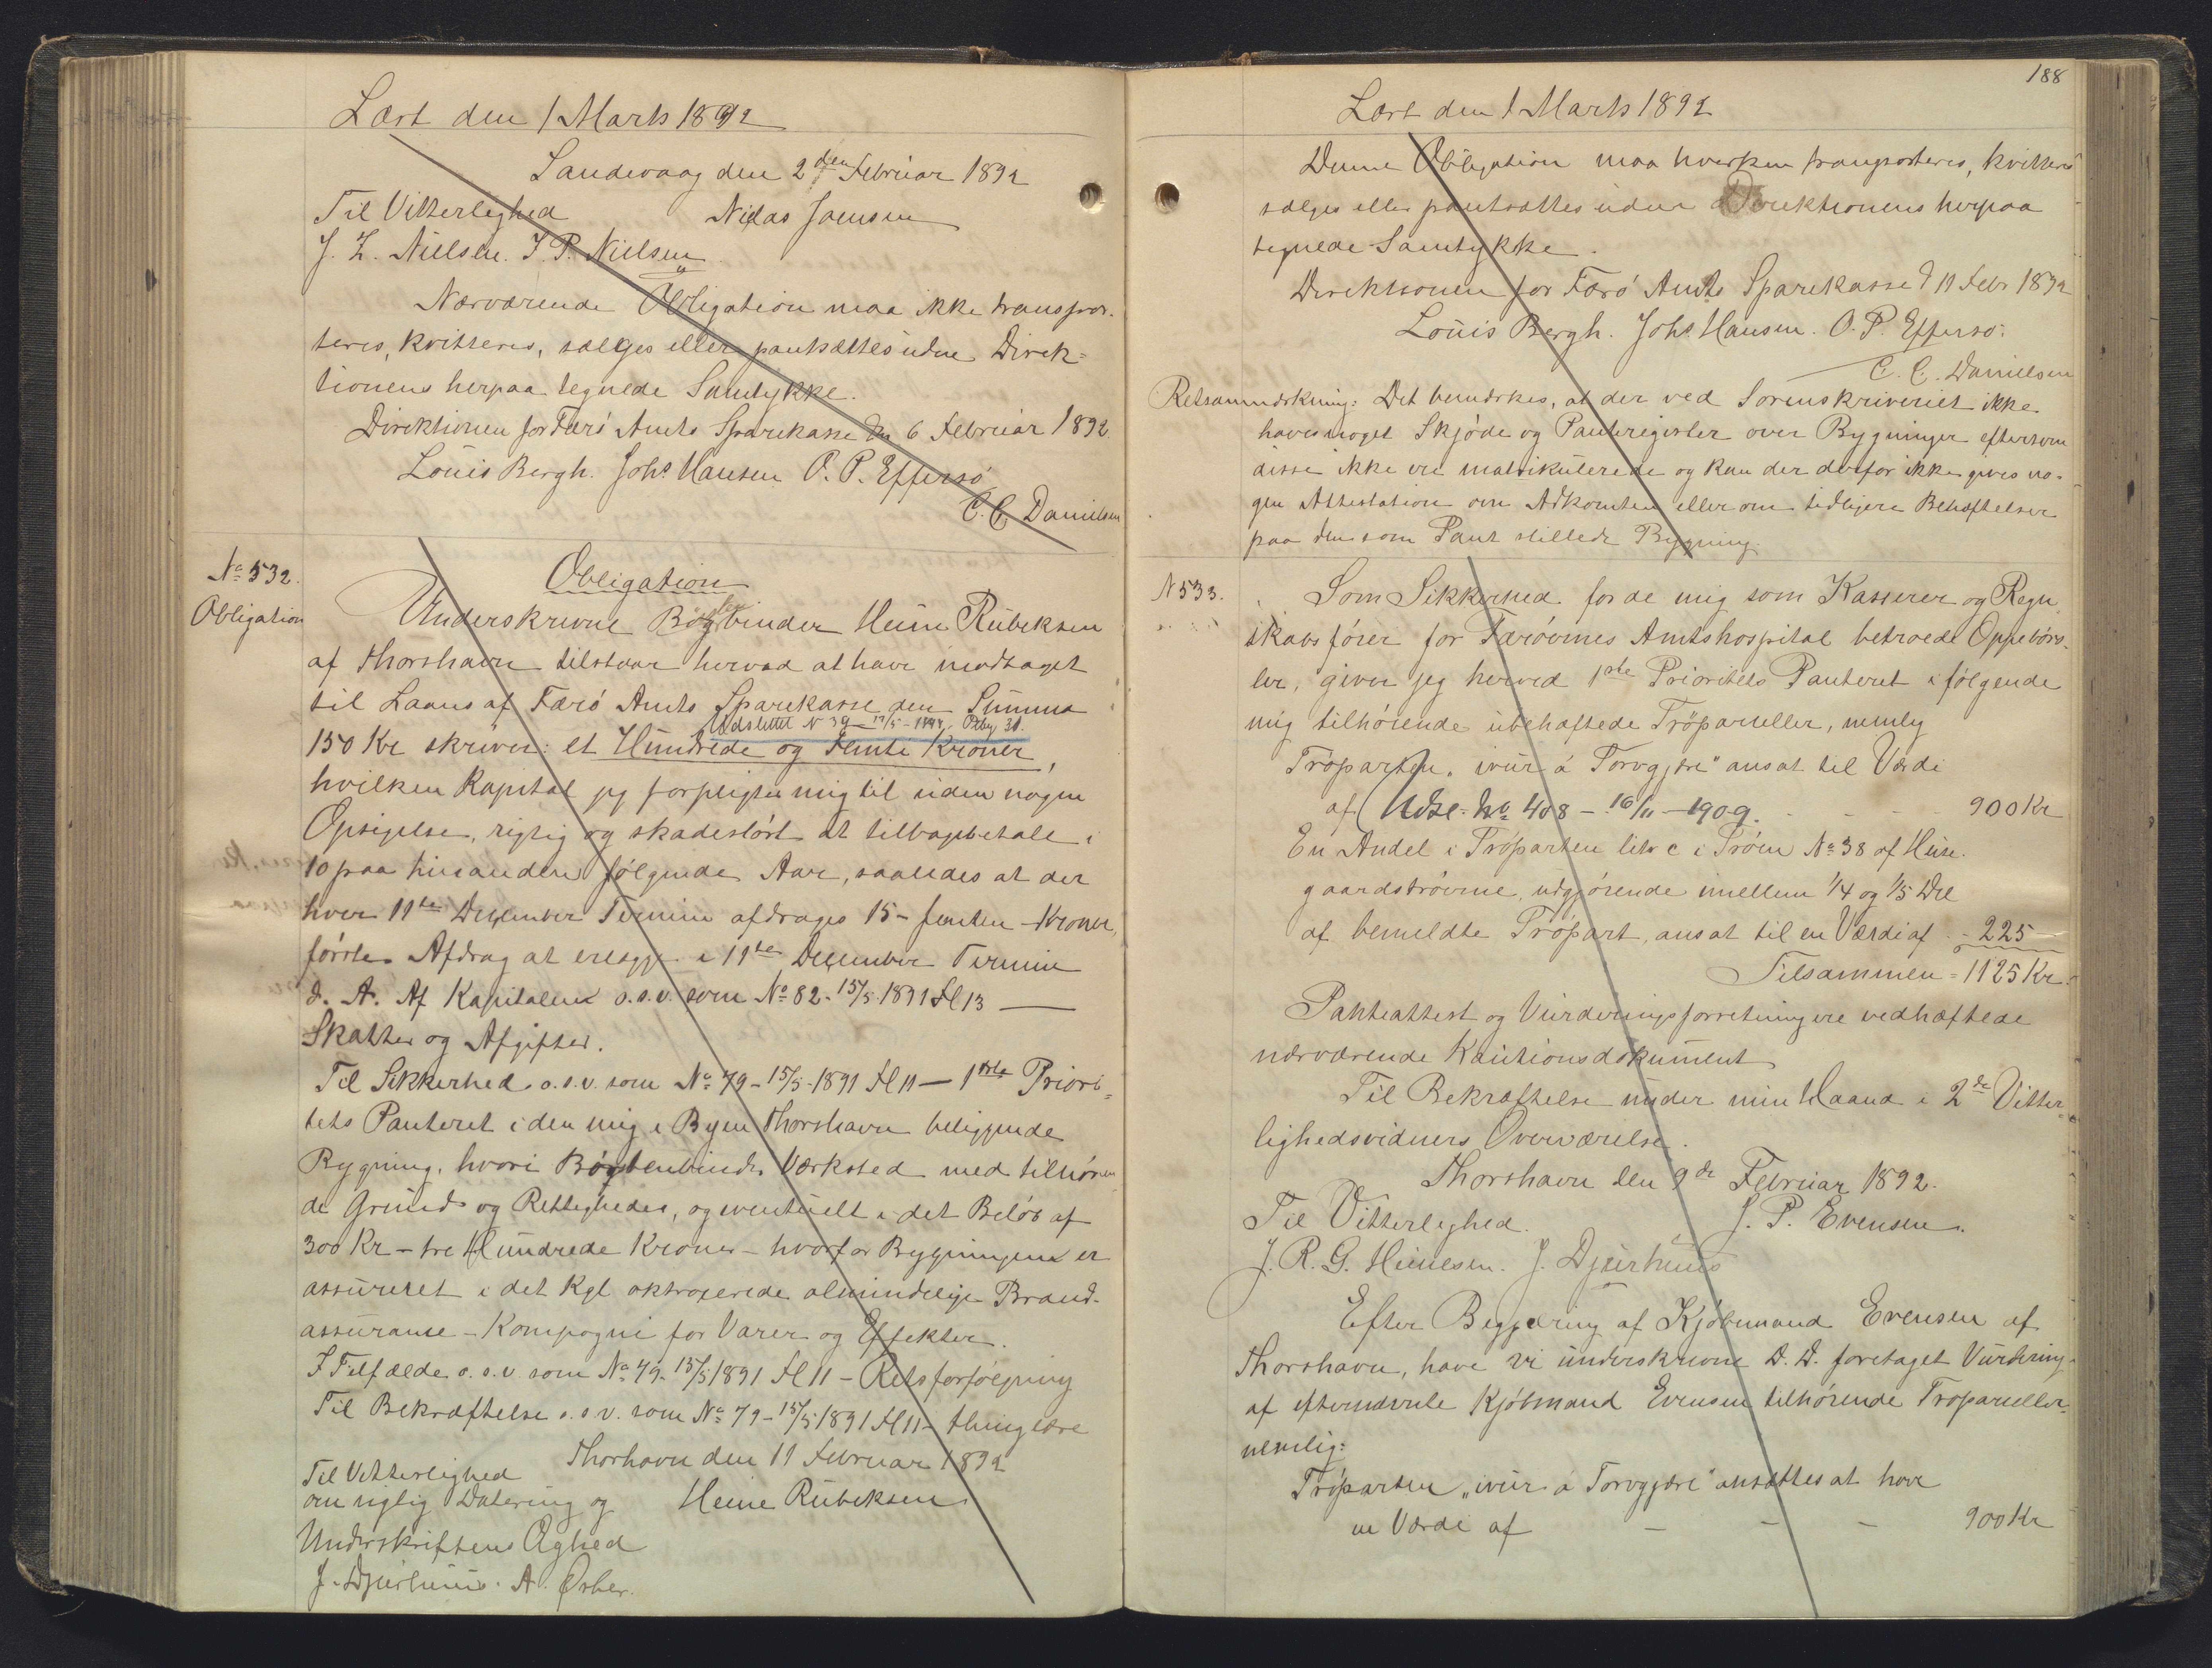 Læst den 1 Marts 1892
Sandevaag den 2den Februar 1892
Til Vitterlighed Niclas Joensen
J. Z. Nielsen. J. P. Nielsen
Nærværende Obligation maa ikke transpor-
teres, kvitteres, sælges eller pantsættes uden Direk=
tionens herpaa tegnede Samtykke.
Direktionen for Færø Amts Sparekasse den 6 Februar 1892
Louis Bergh. Johs Hansen O. P. Effersø
C. C. Danielsen
No 532.
Obligation
Obligation
Underskrevne Bogbinder Heine Rubeksen
af Thorshavn tilstaar herved at have modtaget
til Laans af Færø Amts Sparekasse den Summa
Udslettet No 39 - 17/5 - 1899
150 Kr skriver: et Hundrede og Femti Kroner,
hvilken Kapital jeg forpligter mig til uden nogen
Opsigelse, rigtig og skadesløst at tilbagebetale i
10 paa hinanden følgende Aar, saaledes at der
hver 11te December Termin afdrages 15 - femten - Kroner,
første Afdrag at erlægge i 11te December Termin
d. A. Af Kapitalen o.s.v. som No 82. 15/5 1891 Fl 13 —
Skatter og Afgifter.
Til Sikkerhed o.s.v. som No 79 - 15/5 - 1891 Fl 11 — 1ste Priori=
tets Panteret i den mig i Byen Thorshavn beliggende
Bygning, hvori Bogbenbinder Værksted med tilhøren
de Grund og Rettigheder, og eventuelt i det Beløb af
300 Kr - tre Hundrede Kroner - hvorfor Bygningen er
assureret i det Kgl oktroierede almindelige Brand-
assurance - Kompagni for Varer og Effekter.
I Tilfælde o.s.v. som No 79. 15/5 1891 Fl 11 - Retsforfølgning
Til Bekræftelse o.s.v. som No 79 - 15/5 1891 Fl 11 - thinglæse
Thorhavn den 11 Februar 1892
Til Vitterlighed
om rigtig Datering og Heine Rubeksen
Underskriftens Ægthed
J. Djurhuus. A.
188
Læst den 1 Marts 1892
Denne Obligation maa hverken transporteres, kvitteres
sælges eller pantsættes uden Direktionens herpaa
tegnede Samtykke.
Direktionen for Færø Amts Sparekasse d 11 Febr 1892
Louis Bergh. Johs Hansen. O. P. Effersø.
C. C. Danielsen
Retsanmærkning: Det bemærkes, at der ved Sorenskriveriet ikke
haves noget Skjøde og Panteregister over Bygninger eftersom
disse ikke ere matrikulerede og kan der derfor ikke gives no-
gen Attestation om Adkomten eller om tidligere Behæftelser
paa den som Pant stillede Bygning.
N 533.
Som Sikkerhed for de mig som Kasserer og Regn
skabsfører for Færøernes Amtshospital betroede Oppebørs-
ler, giver jeg herved 1ste Prioritets Panteret i følgende
mig tilhørende ubehæftede Trøparceller, nemlig
Trøparten "ivur á Torvgjøre" ansat til Værdi
af (Udsl. No 408 - 16/11 - 1909. - - - 900 Kr
En Andel i Trøparten litr c i Trøen No 38 af Huse-
gaardstrøerne, udgjørende imellem 1/4 og 1/5 Del
af bemeldte Trøpart, ansat til en Værdi af - 225 —
Tilsammen = 1125 Kr.
Panteattest og Vurderingsforretning ere vedhæftede
nærværende Kautionsdokument
Til Bekræftelse under min Haand i 2de Vitter=
lighedsvidners Overværelse.
Thorshavn den 9de Februar 1892.
Til Vitterlighed. J. P. Evensen.
J. R. G. J. Djurhuus
Efter Begjæring af Kjøbmand Evensen af
Thorshavn, have vi underskrevne D. D. foretaget Vurdering
af efternævnte Kjøbmand Evensen tilhørende Trøparceller
nemlig:
Trøparten "ivur á Torvgjøre" ansættes at have
en Værdi af — — — 900 Kr